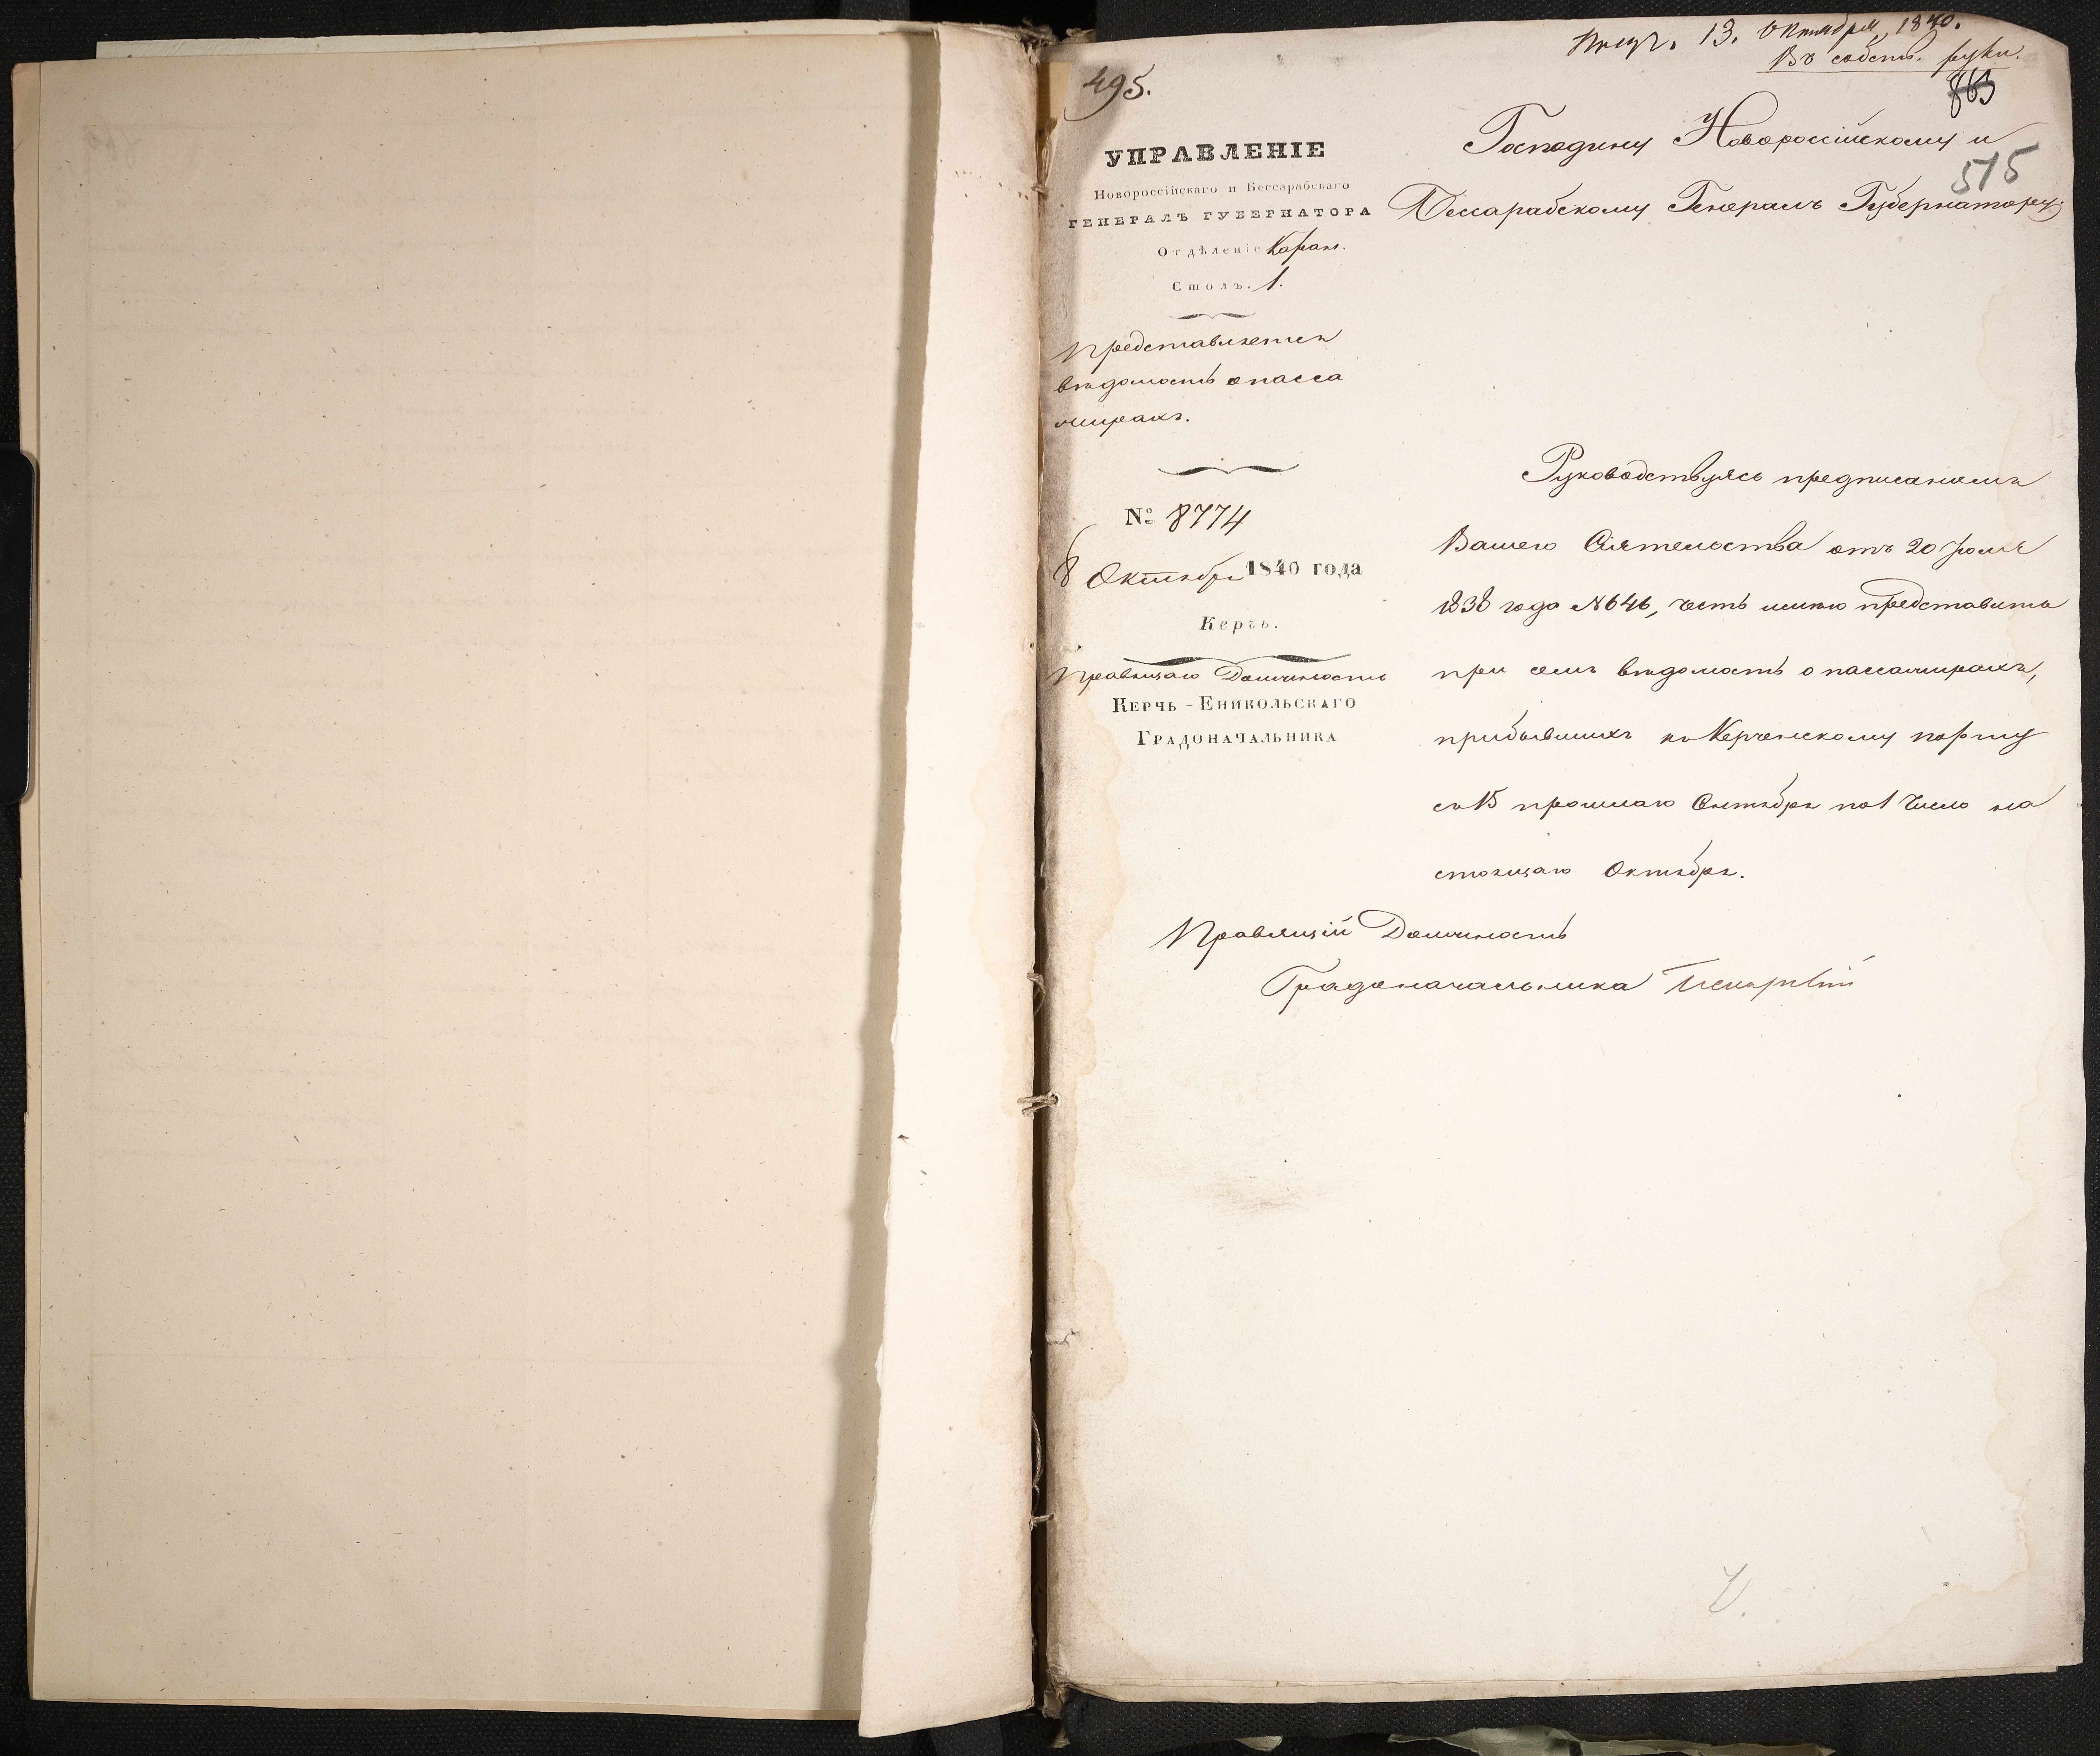 Получ. 13. Октября 1840.
Въ собств. руки.
495.
863
515
УПРАВЛЕНІЕ
Новороссійскаго и Бессарабскаго
ГЕНЕРАЛЪ ГУБЕРНАТОРА
Отдѣленіе Каран.
Столъ. 1.
Представляется
вѣдомость о пасса
жирахъ.
№ 8774
8 Октября 1840 года
Керчь.
Правящаго Должность
КЕРЧЬ-ЕНИКОЛЬСКАГО
ГРАДОНАЧАЛЬНИКА
Господину Новороссійскому и
Бессарабскому Генералъ Губернатору.
Руководствуясь предписаніемъ
Вашего Сіятельства отъ 20 Іюля
1838 года №646, честь имѣю представить
при семъ вѣдомость о пассажирахъ,
прибывшихъ къ Керченскому порту
съ 15 прошлаго Сентября по 1 число на
стоящаго Октября.
Правящій Должность
Градоначальника